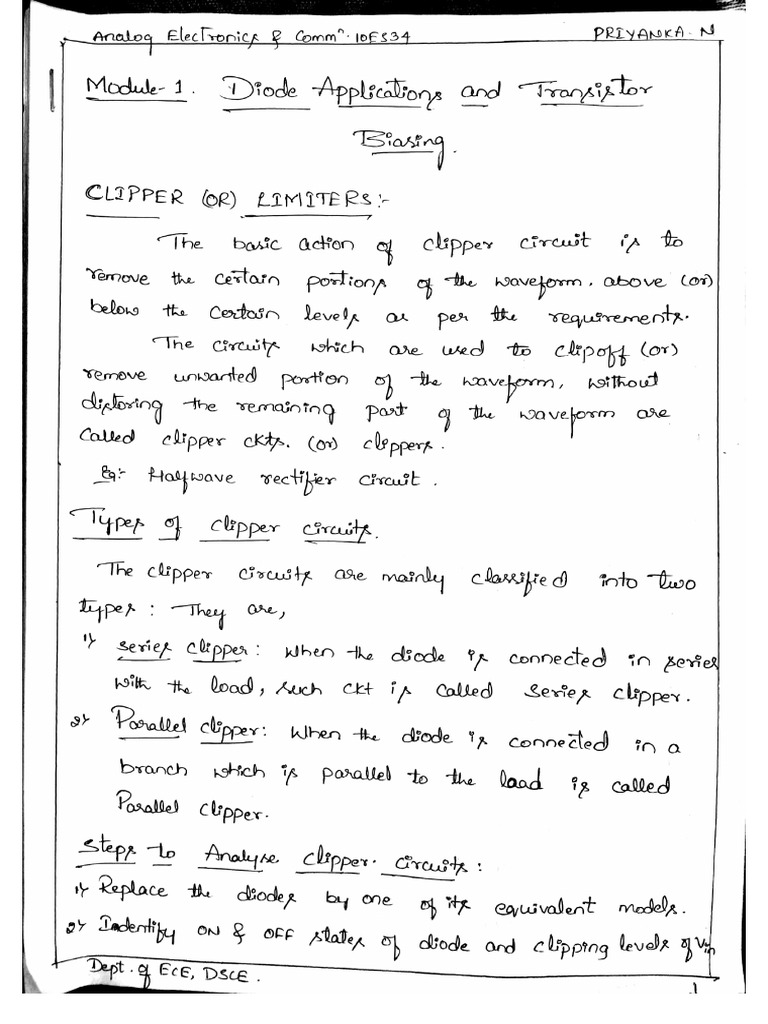 Analog Electronics & Commⁿ. 10ES34 PRIYANKA. N
Module-1. Diode Applications and Transistor
Biasing.
CLIPPER (OR) LIMITERS:-
The basic action of clipper circuit is to
remove the certain portions of the waveform, above (or)
below the certain levels as per the requirements.
The circuits which are used to clipoff (or)
remove unwanted portion of the waveform, without
distoring the remaining part of the waveform are
called clipper ckts. (or) clippers.
Eg:- Halfwave rectifier circuit.
Types of clipper circuits.
The clipper circuits are mainly classified into two
types: They are,
1) series clipper: When the diode is connected in series
with the load, such ckt is called series clipper.
2) Parallel clipper: When the diode is connected in a
branch which is parallel to the load is called
Parallel clipper.
Steps to Analyse clipper circuits:
1) Replace the diodes by one of its equivalent models.
2) Indentify ON & OFF states of diode and clipping levels of Vin
Dept. of ECE, DSCE.
1